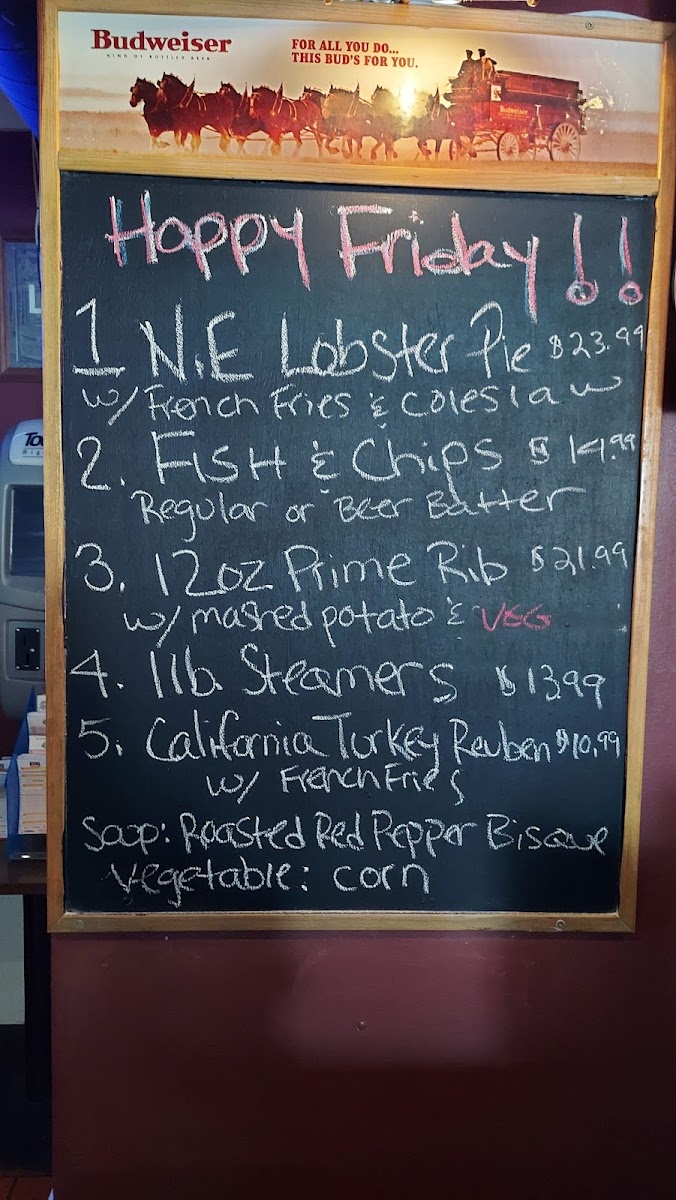 Budweiser
KING OF BOTTLED BEER
FOR ALL YOU DO...
THIS BUD'S FOR YOU.
Budweiser
Happy Friday!!
1 N.E Lobster Pie $23.99
w/ French Fries & coleslaw
2. FisH & Chips $14.99
Regular or Beer Batter
3. 12oz Prime Rib $21.99
w/ mashed potato & VEG
4. 1lb. Steamers $13.99
5. California Turkey Reuben $10.99
w/ French Fries
Soup: Roasted Red Pepper Bisque
Vegetable: corn